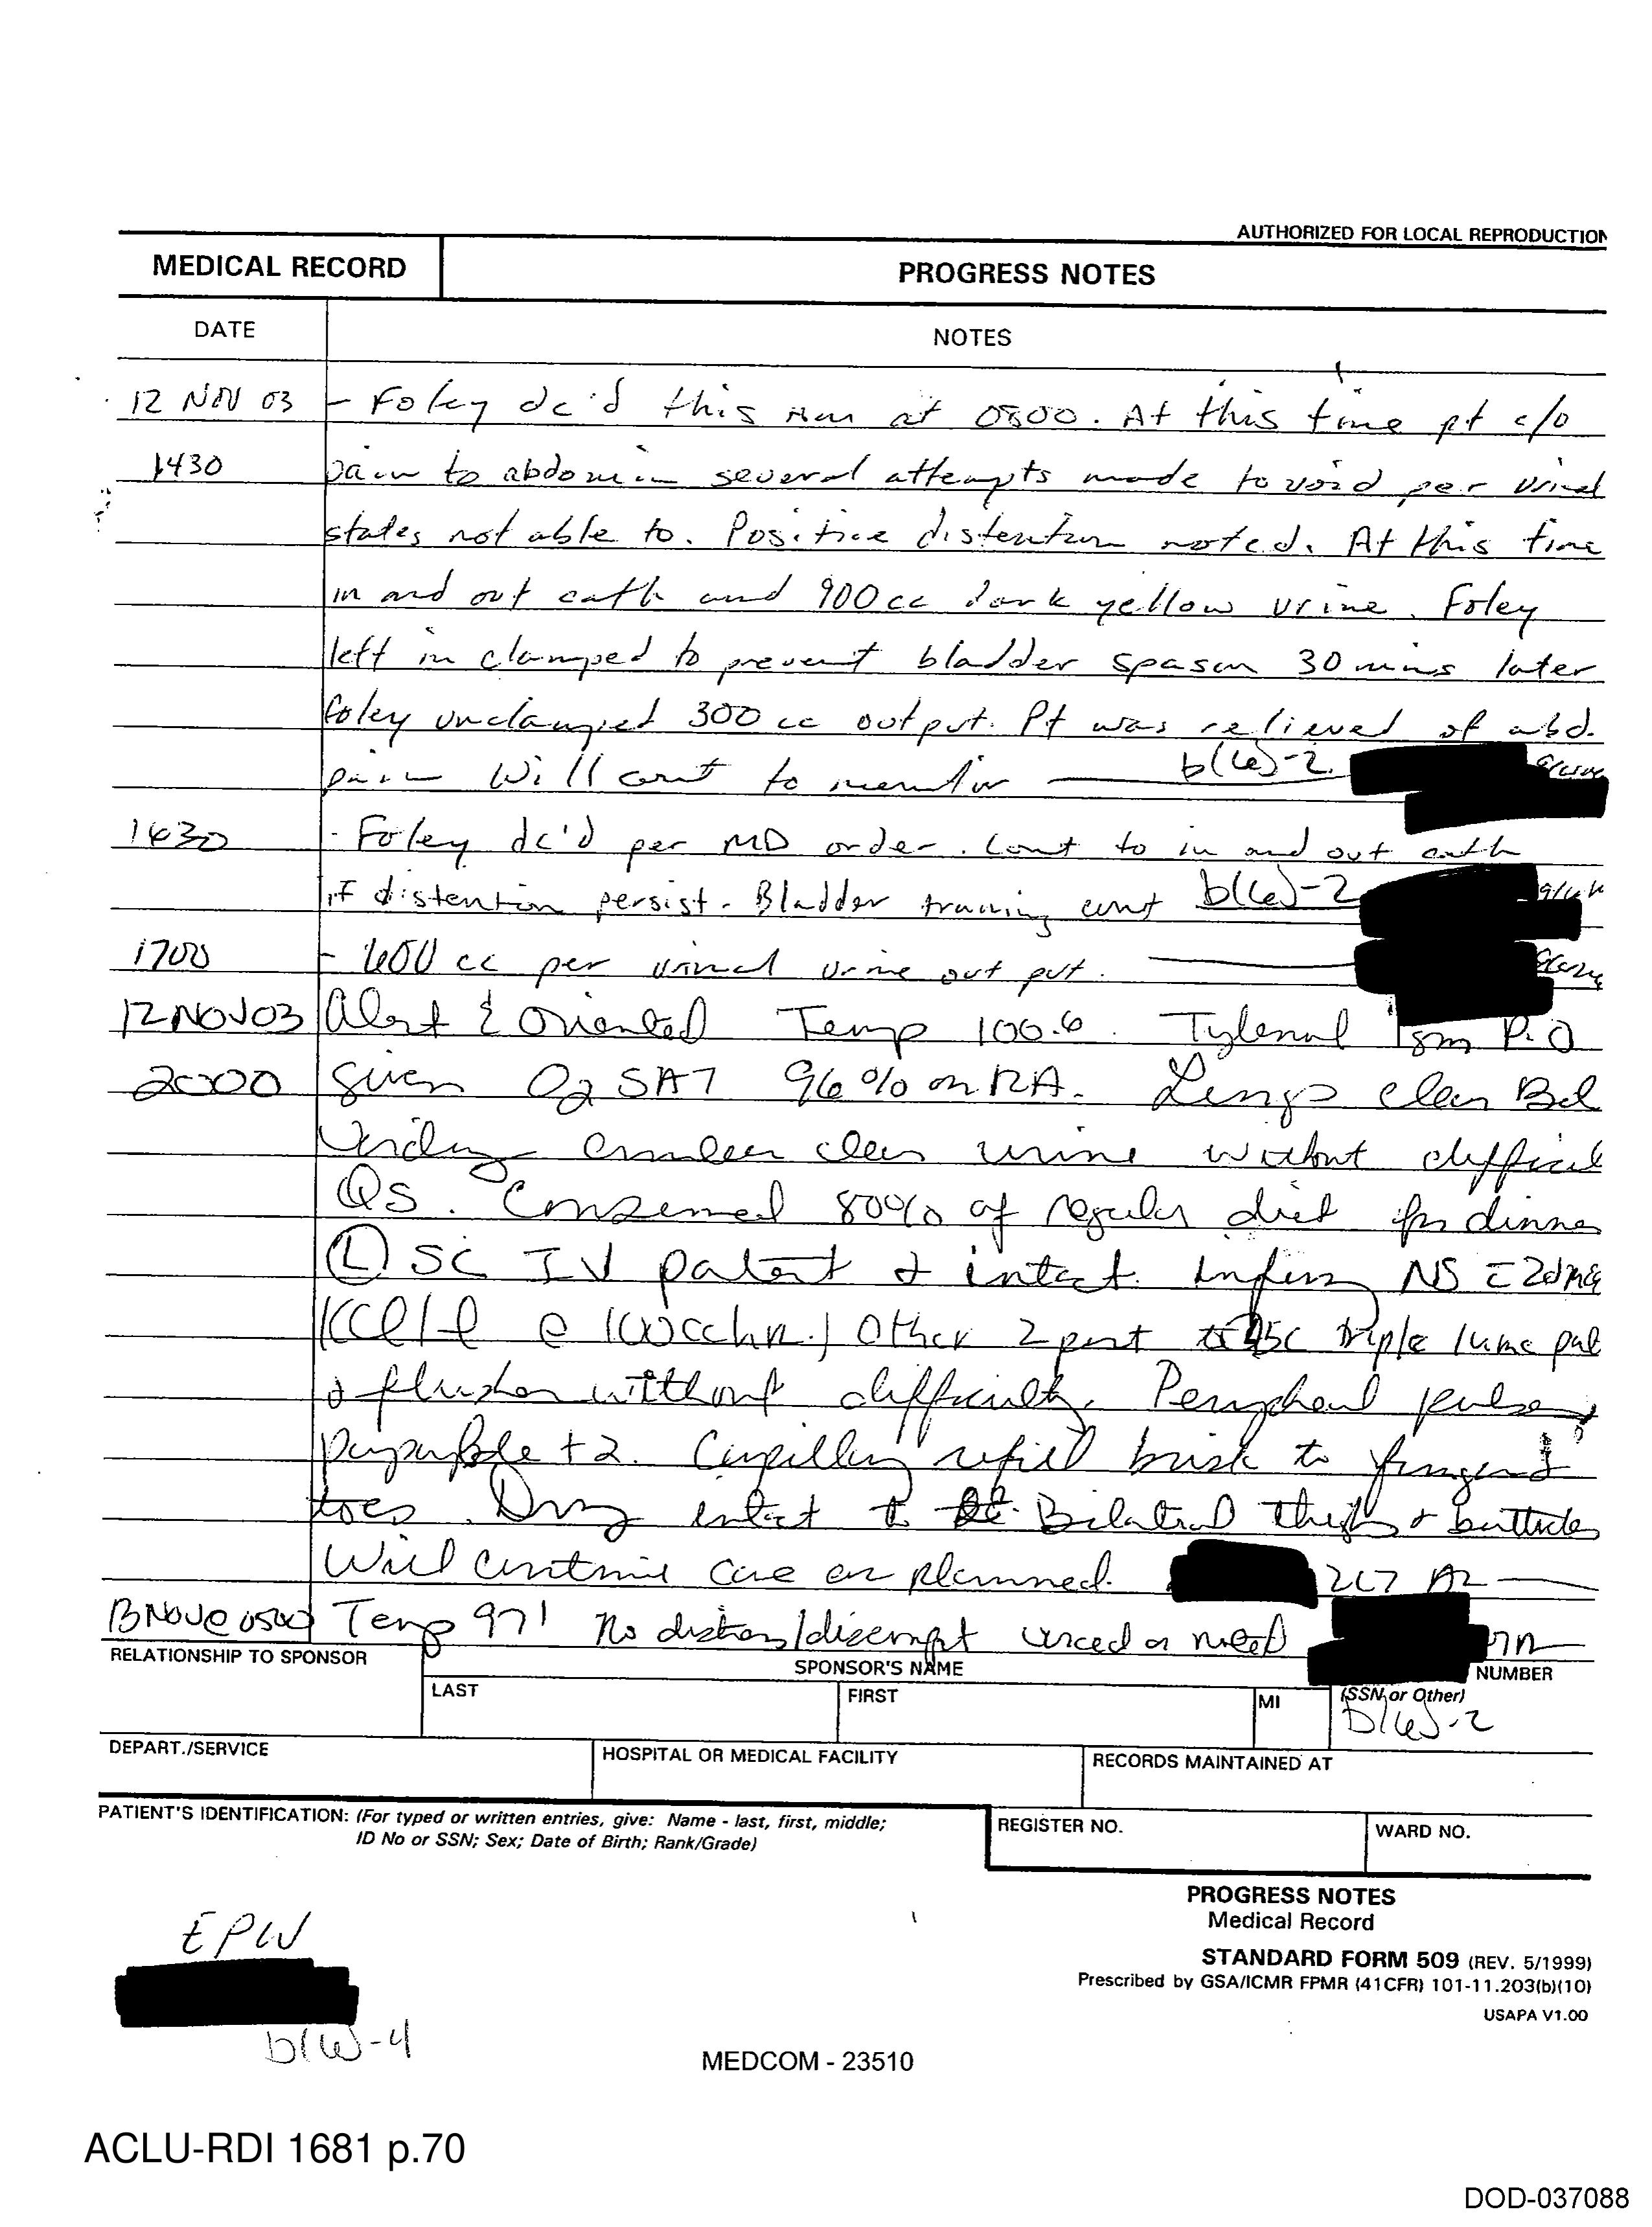 AUTHORIZED FOR LOCAL REPRODUCTION
MEDICAL RECORD
PROGRESS NOTES
DATE
NOTES
12 NOV 03 - Foley dc'd this am at 0800. At this time pt c/o
1430 pain to abdomin several attempts made to void per urinal
states not able to. Positive distention noted. At this time
in and out cath and 900cc dark yellow urine. Foley
left in clamped to prevent bladder spasm 30 mins later
foley unclamped 300 cc output. Pt was relieved of abd.
pain Will cont to monitor b(6)-2
1630 - Foley dc'd per MD order. Cont to in and out cath
if distention persist. Bladder training cont b(6)-2
1700 - 600 cc per urinal urine out put.
12NOV03 Alert & Oriented Temp 100.6. Tylenol 1gm P.O
2000 given O2 SAT 96% on RA. Lungs clear
Voiding clear urine without
QS. Consumed 80% of regular diet for dinner
(L) SC IV patent & intact. NS c̄ 20meq
KCl/l @ 100cc/hr. Other 2 port to SC triple lume
& flushes without difficulty. Peripheral pulses
+2. Capillary refill brisk to finger &
toes. Drsg intact to Bilateral thighs & buttocks
Will continue care as planned.
13NOV@0500 Temp 97.1 No distress/discompt voiced or noted
RELATIONSHIP TO SPONSOR
SPONSOR'S NAME
NUMBER
LAST
FIRST
MI
(SSN or Other)
b(6)-2
DEPART./SERVICE
HOSPITAL OR MEDICAL FACILITY
RECORDS MAINTAINED AT
PATIENT'S IDENTIFICATION: (For typed or written entries, give: Name - last, first, middle;
ID No or SSN; Sex; Date of Birth; Rank/Grade)
REGISTER NO.
WARD NO.
PROGRESS NOTES
Medical Record
STANDARD FORM 509 (REV. 5/1999)
Prescribed by GSA/ICMR FPMR (41CFR) 101-11.203(b)(10)
USAPA V1.00
EPW
b(6)-4
MEDCOM - 23510
ACLU-RDI 1681 p.70
DOD-037088